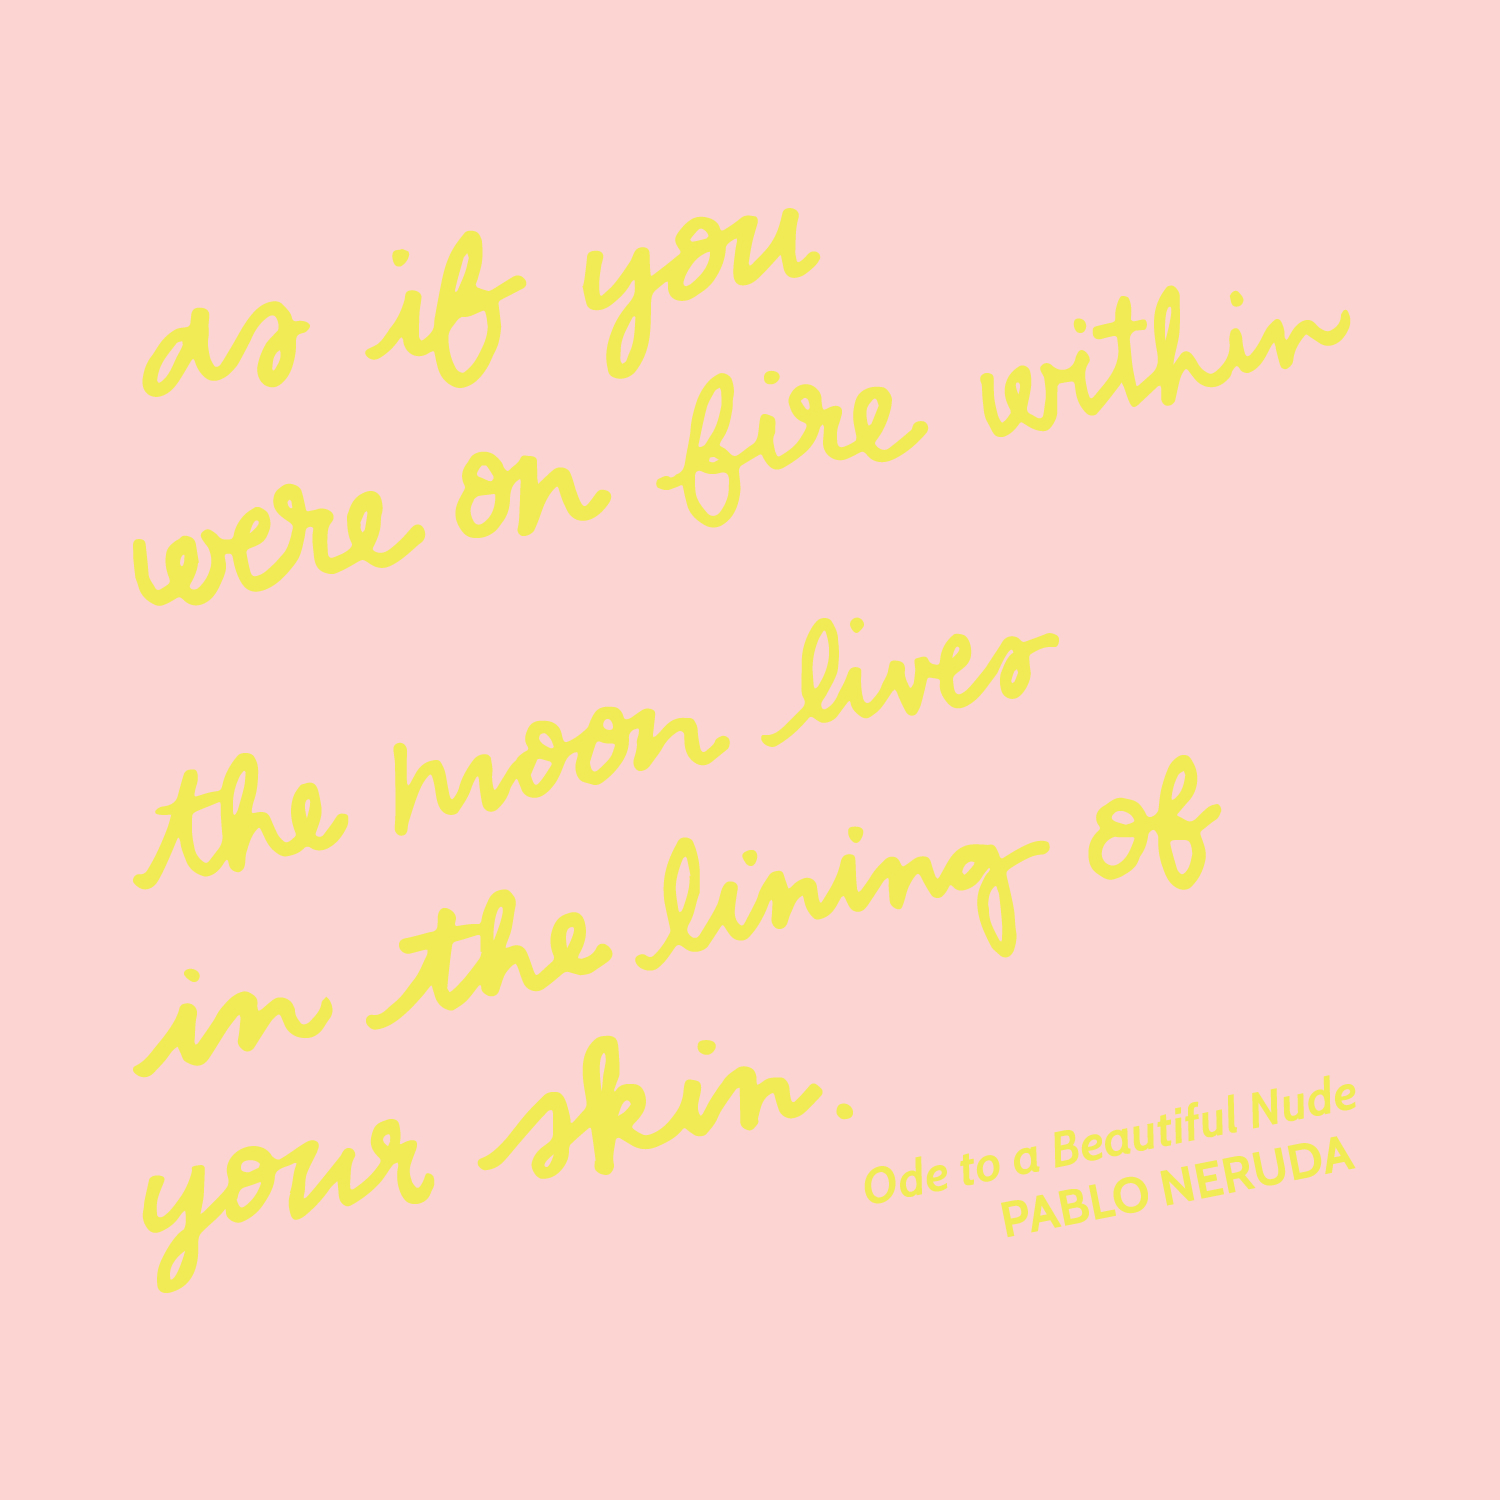 as if you
were on fire within
the moon lives
in the lining of
your skin.
Ode to a Beautiful Nude
PABLO NERUDA